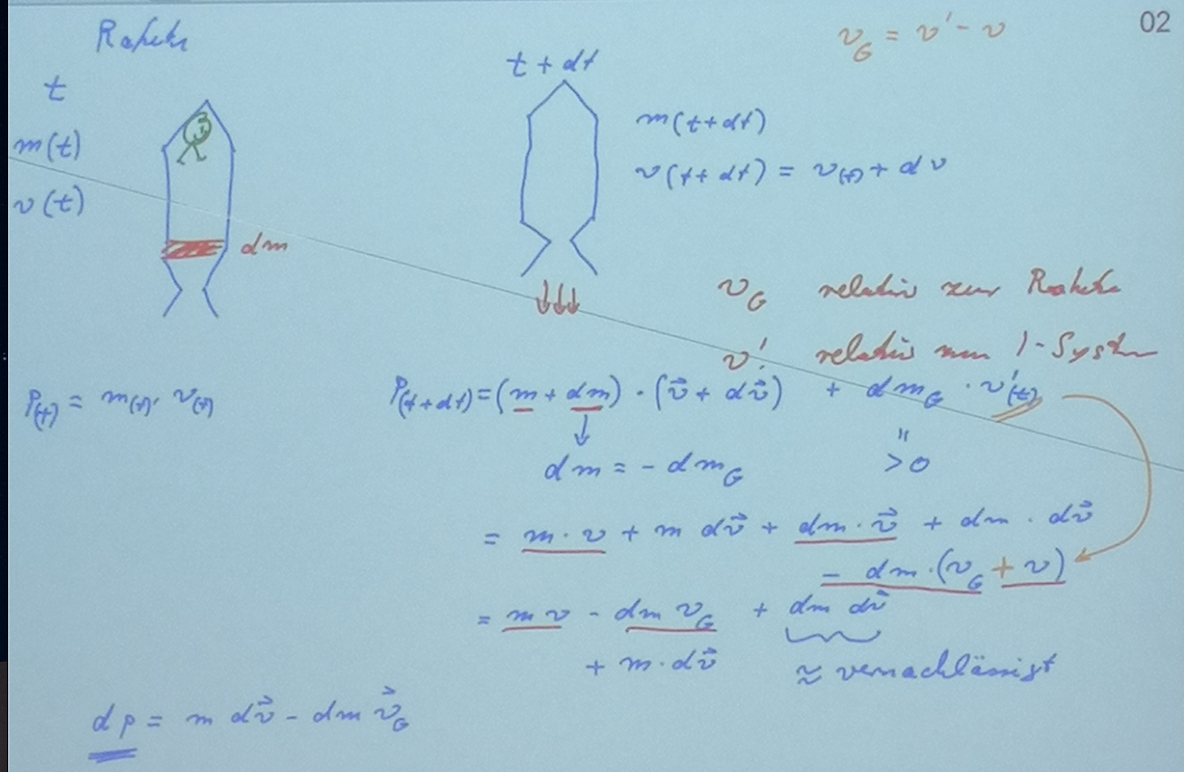 02
Rakete
v_G = v' - v
t
t + dt
m(t)
m(t+dt)
v(t)
v(t+dt) = v(t) + dv
dm
v_G relativ zur Rakete
v' relativ zum I-System
P(t) = m(t) · v(t)
P(t+dt) = (m + dm) · (v⃗ + dv⃗) + dm_G · v'(t)
↓
dm = - dm_G
"
>0
= m · v + m dv⃗ + dm · v⃗ + dm · dv⃗
- dm · (v_G + v)
= m v - dm v_G + dm dv⃗
+ m · dv⃗
≈ vernachlässigt
dp = m dv⃗ - dm v⃗_G